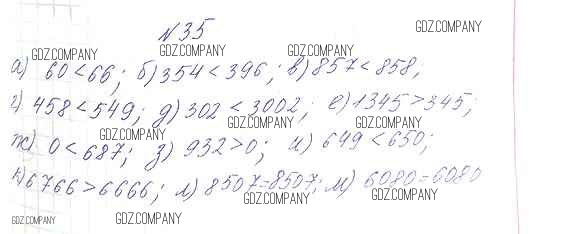 №35
GDZ.COMPANY
GDZ.COMPANY GDZ.COMPANY GDZ.COMPANY
а) 60<66; б) 354<396, в) 857<858,
г) 458<549; д) 302<3002; е) 1345>345;
GDZ.COMPANY GDZ.COMPANY GDZ.COMPANY
ж) 0<687; з) 932>0; и) 649<650;
к) 6766>6666; л) 8507=8507; м) 6080=6080
GDZ.COMPANY GDZ.COMPANY
GDZ.COMPANY GDZ.COMPANY